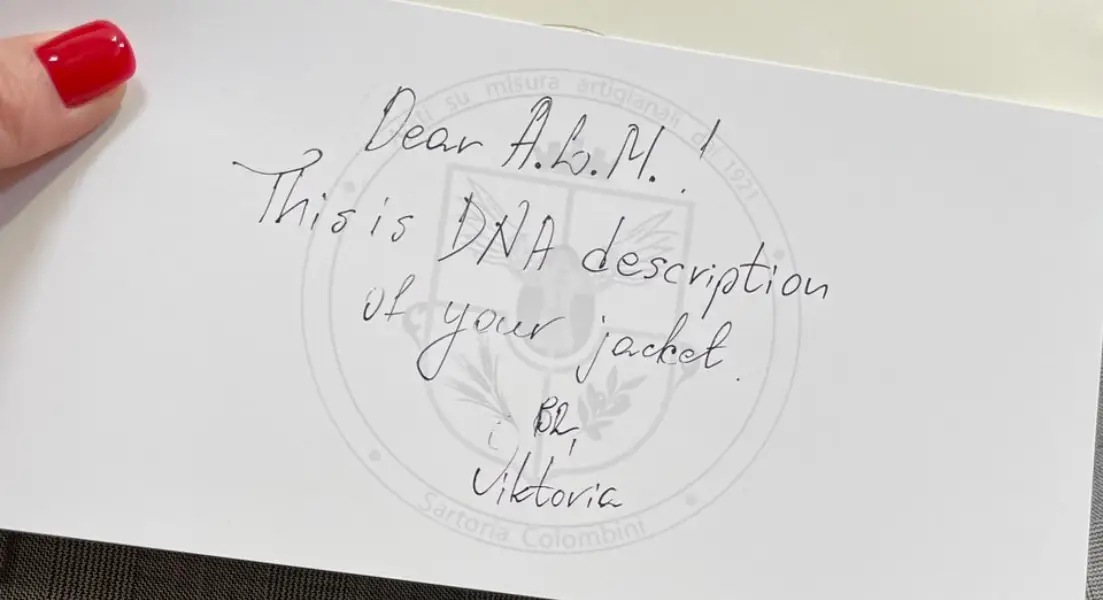 ti su misura artigianali dal 1921
Dear A.L.M.!
This is DNA description
of your jacket.
BR,
Viktoria
Sartoria Colombini